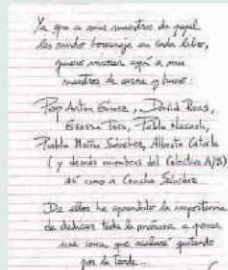 Ya que a mis maestros de papel
les rindo homenaje en cada libro,
quiero invitar aquí a mis
maestros de carne y hueso:
Pep Antón Gómez, David Roas,
Gracia Tres, Pablo Nacach,
Pablo Martín Sánchez, Alberto Catalá
(y demás miembros del Colectivo A/B)
así como a Concha Sánchez
De ellos he aprendido la importancia
de dedicar toda la mañana a poner
una coma, que acabaré quitando
por la tarde...